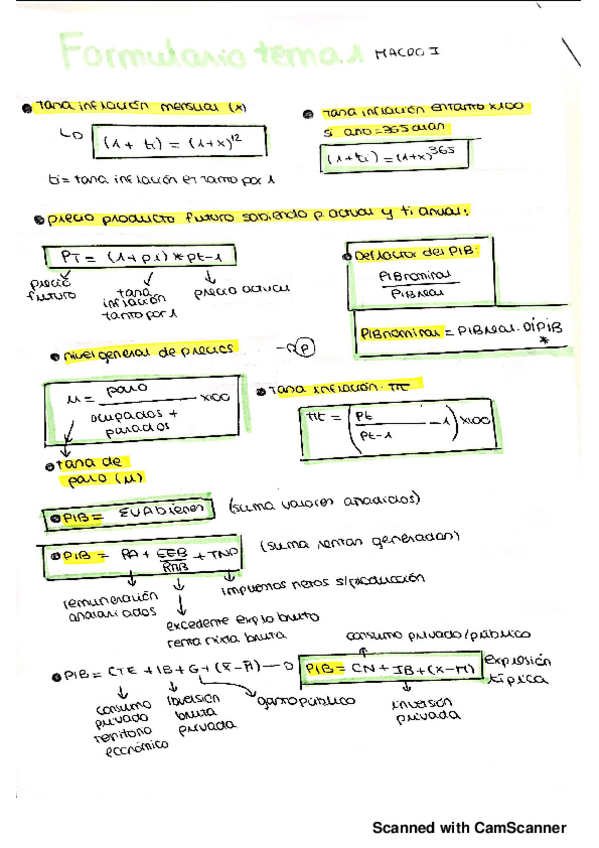 Formulario tema 1 MACRO I
• Tasa inflación mensual (x)
(1 + ti) = (1+x)^12
ti = tasa inflación en tanto por 1
• Tasa inflación en tanto x100
si año = 365 días
(1+ti) = (1+x)^365
• precio producto futuro sabiendo p actual y ti anual:
PT = (1+pi) * pt-1
precio futuro
tasa inflación tanto por 1
precio actual
• Deflactor del PIB:
PIBnominal
PIBreal
PIBnominal = PIBreal · DIPIB
*
• nivel general de precios → P
u = paro / ocupados + parados x100
• tasa de paro (u)
• Tasa inflación. πt
πt = (Pt / Pt-1 - 1) x100
• PIB = ΣVABienes (suma valores añadidos)
• PIB = RA + EEB / RMB + TNP (suma rentas generadas)
remuneración asalariados
excedente explo bruto
renta mixta bruta
impuestos netos s/producción
• PIB = CTE + IB + G + (X-M) → PIB = CN + IB + (X-M) expresión típica
consumo privado/público
consumo privado territorio económico
Inversión bruta privada
gasto público
inversión privada
Scanned with CamScanner